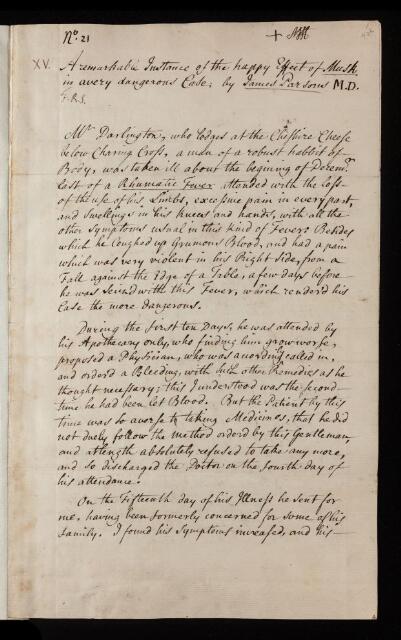 No. 21
XV. A remarkable Instance of the happy Effect of Musk
in a very dangerous Case; by James Parsons M.D.
F.R.S.
Mr. Darlington, who lodges at the Cheshire Cheese
below Charing Cross, a man of a robust habbit of
Body, was taken ill about the begining of Decemr.
Last of a Rhumatic Fever attended with the Loss
of the use of his Limbs, excessive pain in every part,
and Swellings in his knees and hands, with all the
other Symptoms usual in this kind of Fever; Besides
which he Coughed up Grumous Blood, and had a pain
which was very violent in his Right Side, from a
Fall against the Edge of a Table, a few days before
he was Seized with this Fever, which renderd his
Case the more dangerous.
During the first ten Days, he was attended by
his Apothecary only, who finding him grow worse,
proposed a Physician, who was acording called in,
and order'd a Bleeding, with such other Remedies as he
thought necessary; this I understood was the second
time he had been let Blood. But the Patient by this
time was so averse to taking Medicines, that he did
not duely follow the method orderd by this Gentleman,
and at length absolutely refused to take any more,
and so discharged the Doctor on the fourth day of
his attendance.
On the Fifteenth day of his Illness he sent for
me, having been formerly concerned for some of his
Family. I found his Symptoms increased, and his